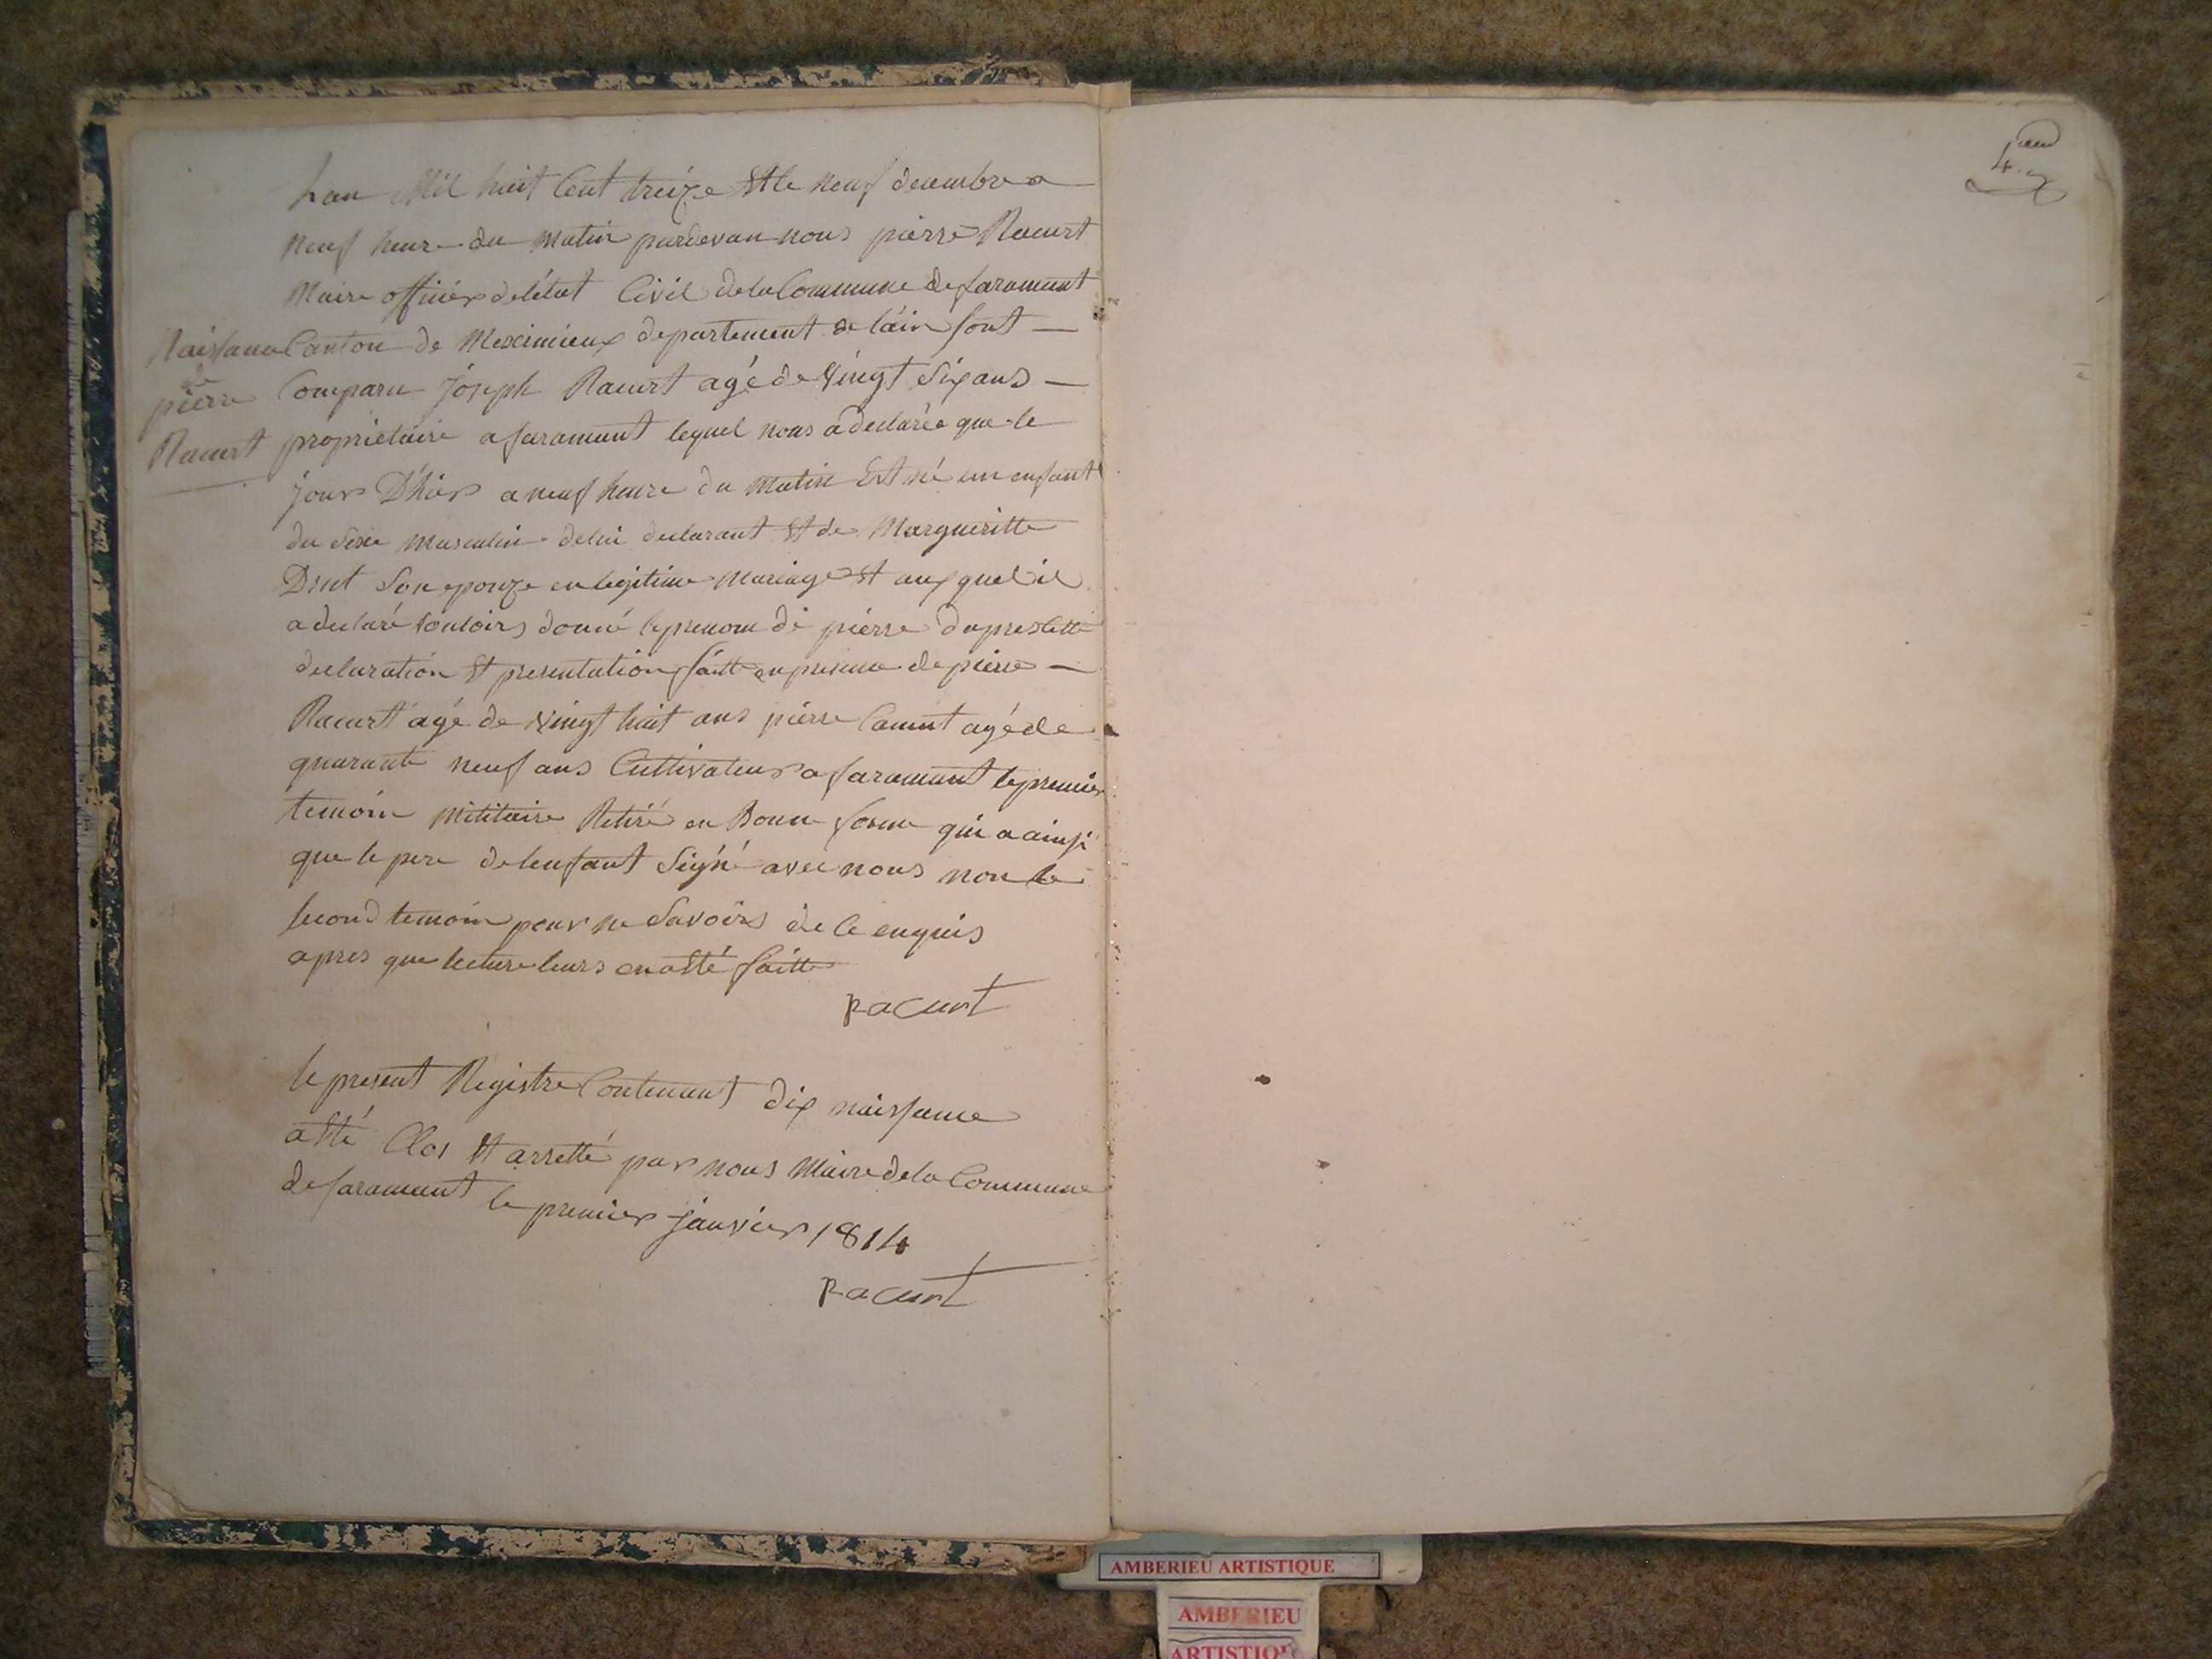 Lan Mil huit Cent treize Et le neuf decembre a
neuf heure du matin pardevan nous pierre Racurt
Maire officier de létat Civil de la Commune de faramant
Canton de Meximieux departement de láin sont
Comparu joseph Racurt agé de Vingt Six ans
propriétaire a faramant lequel nous a declarée que le
jour D'hier a neuf heure du matin Est né un enfant
du Sexe masculin de lui declarant Et de Margueritte
Son epouze en legitime mariage Et auxquel il
a declaré Vouloirs donné le prenom de pierre dapres cette
declaration Et presentation faitte en presence de pierre
Racurt agé de Vingt huit ans pierre agé de
quarante neuf ans Cultivateur a faramant le premier
temoin militaire Retiré en Bonne forme qui a ainsi
que le pere de lenfant Signé avec nous non le
second temoin pour ne Savoirs de ce enquis
apres que lecture leurs en a Eté faitte
Racurt
Naissance
de
pierre
Racurt
le present Registre Contenant dix naissance
a Eté Clos Et arretté par nous Maire de la Commune
de faramant le premier janvier 1814
Racurt
4
AMBERIEU ARTISTIQUE
AMBERIEU
ARTISTIQUE